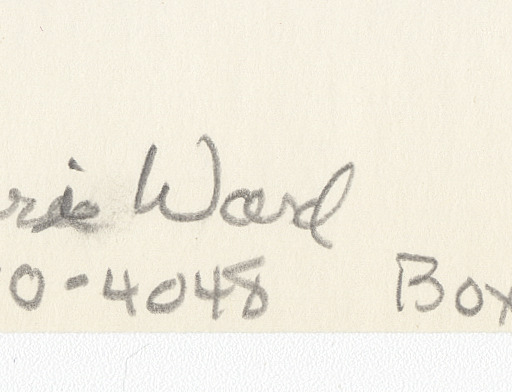 rie Ward
0-4048 Box